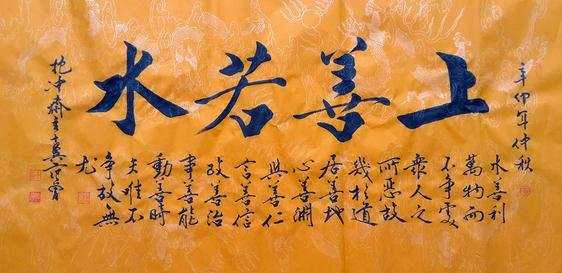 上善若水
辛卯年仲秋
水善利
萬物而
不爭處
衆人之
所惡故
幾於道
居善地
心善淵
與善仁
言善信
政善治
事善能
動善時
夫唯不
爭故無
尤
抱冲齋主